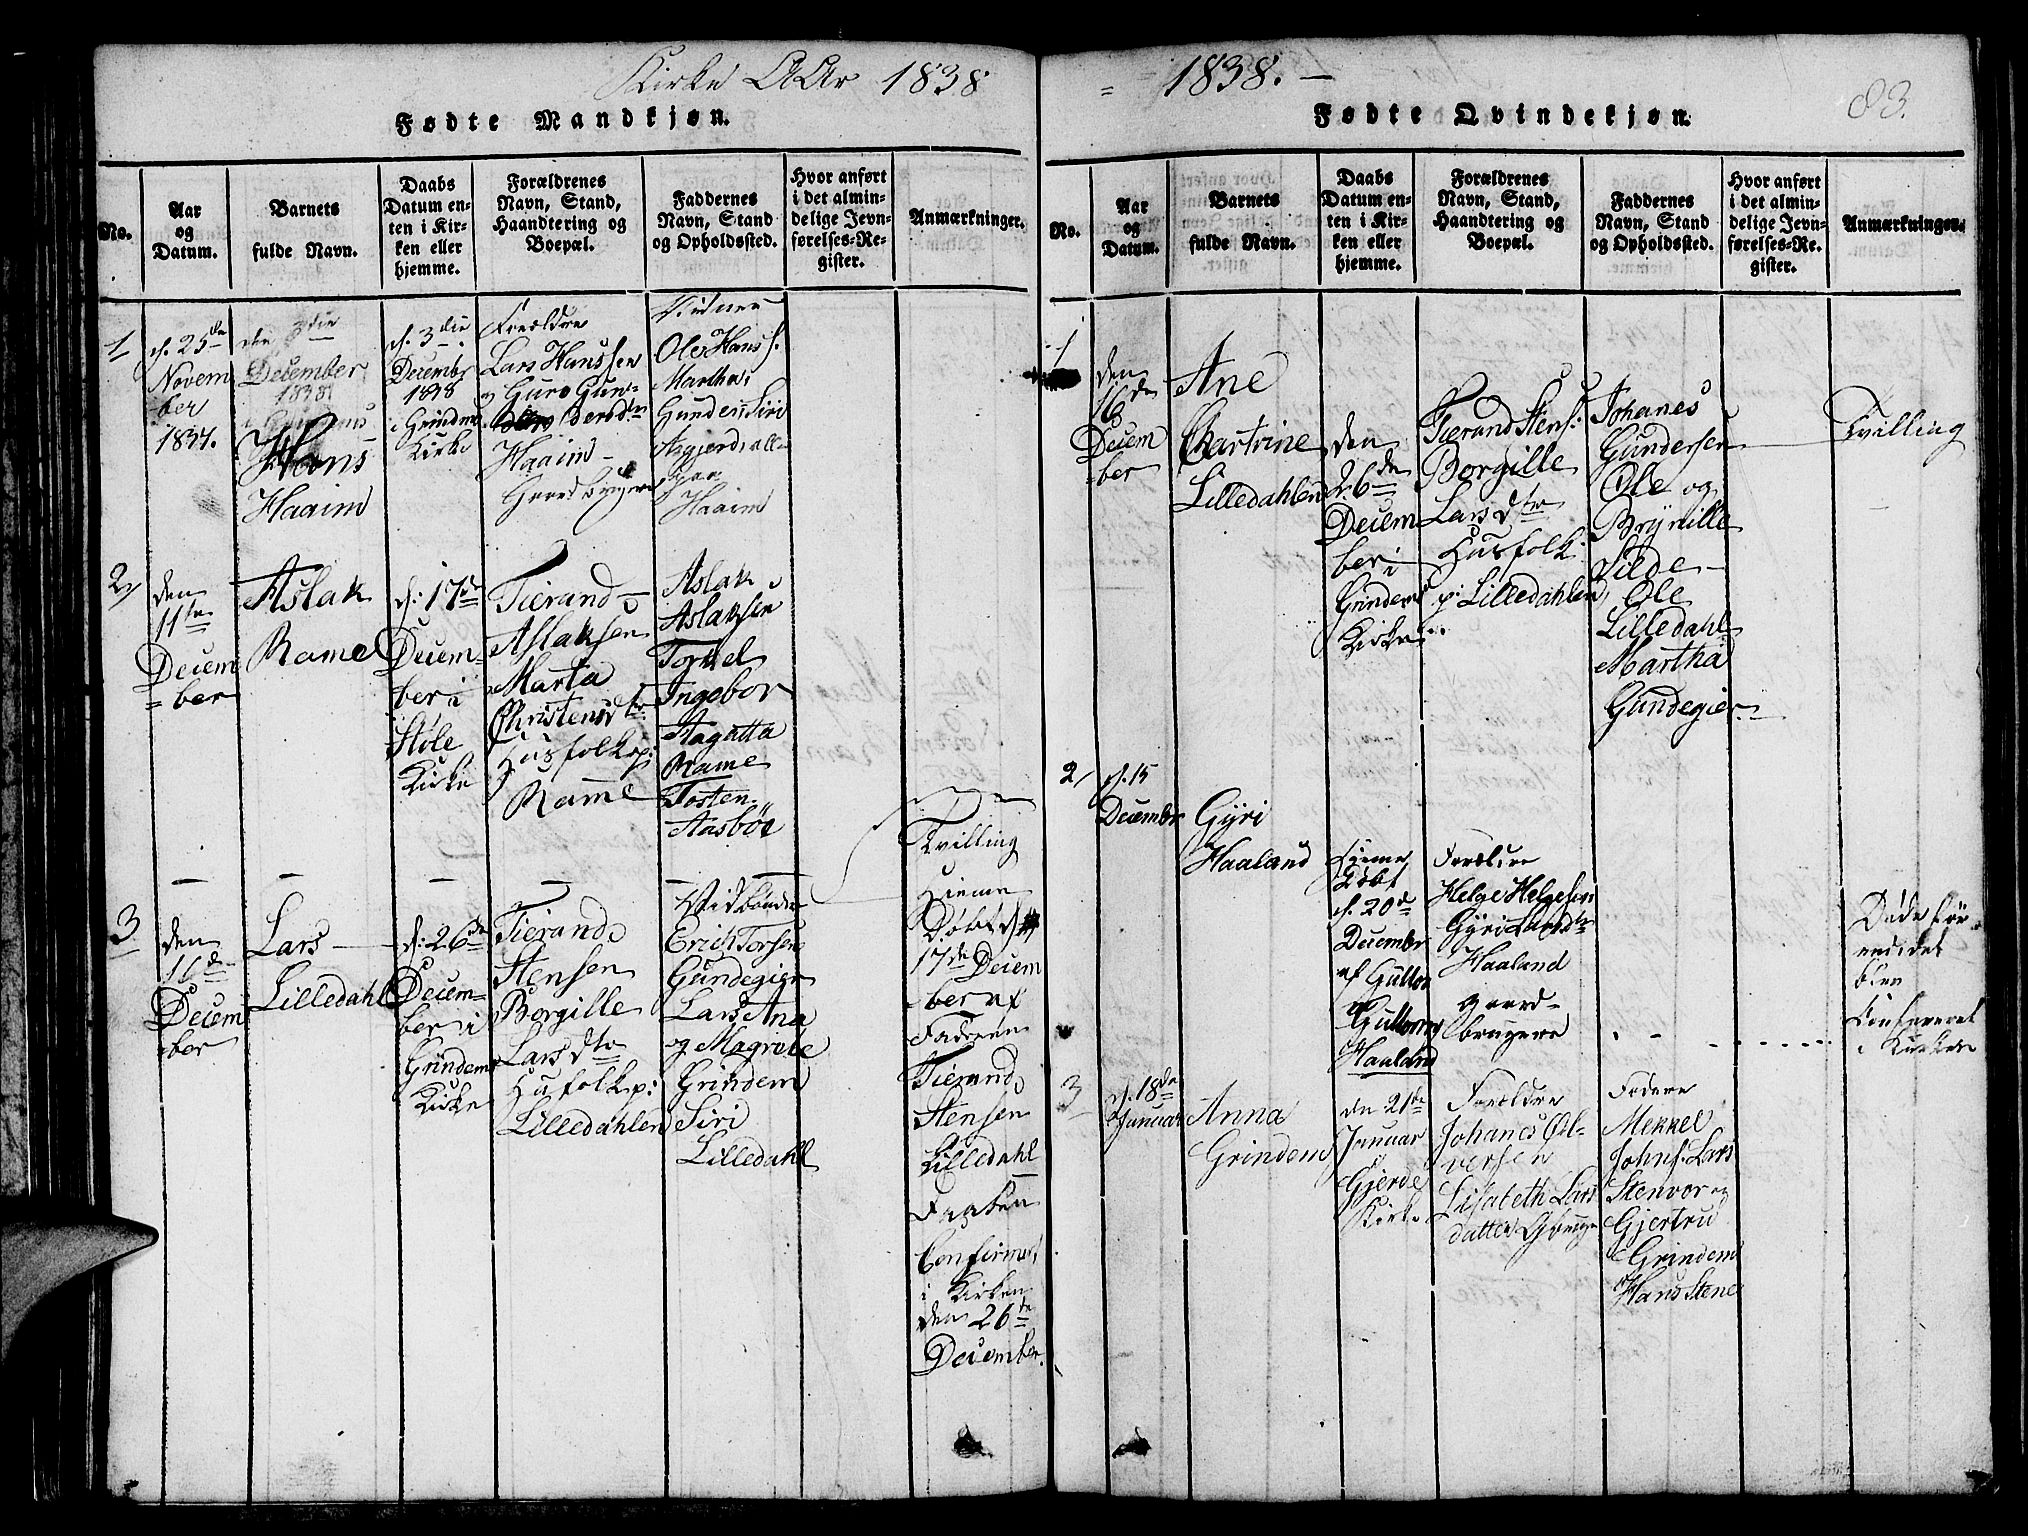 Kirke AAr 1838
Fødte Mandkjøn.
No.
Aar
og
Datum.
Barnets
fulde Navn.
Daabs
Datum en-
ten i Kir-
ken eller
hjemme.
Forældrenes
Navn, Stand,
Haandtering og
Boepæl.
Faddernes
Navn, Stand
og Opholdssted.
Hvor anført
i det almin-
delige Jevn-
førelses-Re-
gister.
Anmærkninger.
1
d. 25de
Novem
ber
1837.
den 3die
December
1838
Hans
Haaim
d. 3die
Decembr
1838
i Grindem
Kirke
Forældre
Lars Hanssen
og Guro Gun-
Berodtr
Haaim
Gaardbrugere
Ole Hanss.
Martha,
Gunder Siri
Asgjerd, alle
paa
Haaim
2
den
11te
Decem
=ber
Aslak
Rame
d: 17de
Decem-
ber i
Støle
Kirke
Tierand
Aslaksen
Marta
Christensdtr
Husfolk p:
Rame
Aslak
Aslaksen
Torkel
Ingebor
Aagatta
Rame
Tosten
Aasbøe
3
den
16de
Decem
-ber
Lars
Lilledahl
d: 26de
Decem-
ber i
Grindem
Kirke
Tierand
Stensen
Borgille
Larsdtr
Husfolk p:
Lilledahlen
Vidbønder
Erich Torsen
Gundegier
Lars Ana
og Magrete
Grindem
Siri
Lilledahl
Tvilling
Hieme
Døbt d
17de Decem
-ber af
Faderen
Tierand
Stensen
Lilledahl
Confirmet
i Kirken
den 26de
December.
= 1838. -
83.
Fødte Qvindekjøn.
No.
Aar
og
Datum.
Barnets
fulde Navn.
Daabs
Datum en-
ten i Kir-
ken eller
hjemme.
Forældrenes
Navn, Stand,
Haandtering og
Boepæl.
Faddernes
Navn, Stand
og Opholdssted.
Hvor anført
i det almin-
delige Jevn-
førelses-Re-
gister.
Anmærkninger.
1
den
16de
Decem
=ber
Ane
Chartrine
Lilledahlen
den
26de
Decem
ber i
Grindem
Kirke
Tierand Stens:
Borgille
Larsdtr
Husfolk
p: Lilledahlen
Johanes
Gundersen
Ole og
Brynille
Silde
Ole
Lilledahl
Martha
Gundegier
Tvilling
2
d. 15
Decembr
Gyri
Haaland
Hjeme
Døbt
d. 20de
Decembr
af Guttor
Guttorms
Haaland
Forældre
Helge Helgesen
Gyri Larsdtr
Haaland
gaard-
brugere
Døde før
end det
blev
Confirmeret
i Kirken
3
d. 18de
Januar
Anna
Grindem
den 21de
Januar
Gjerde
Kirke
Forældre
Johanes Ol-
versen
Lisabeth Lars
datter Gbruge
Fadere
Mekkel
Johns. Lars
Stenvor og
Gjertru
Grindem
Hans Stene